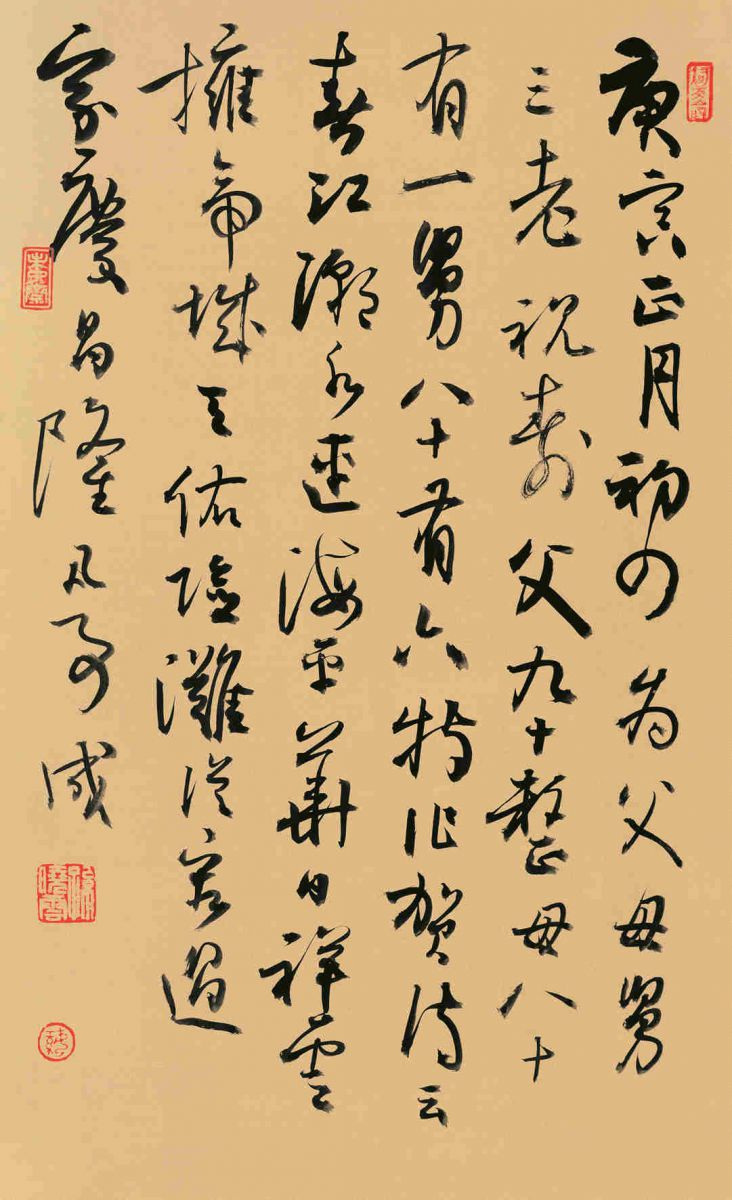 庚寅正月初四為父母舅
三老祝壽父九十整母八十
有一舅八十有六特作賀詩云
春江潮水連海平華日祥雲
擁帝城天佑險灘從容過
家慶昌隆凡事成